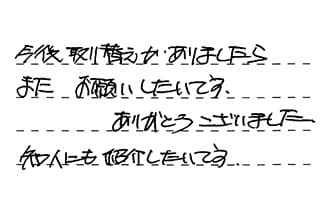 今後、取り替えがありましたら
また お願いしたいです。
ありがとうございました。
知人にも紹介したいです。